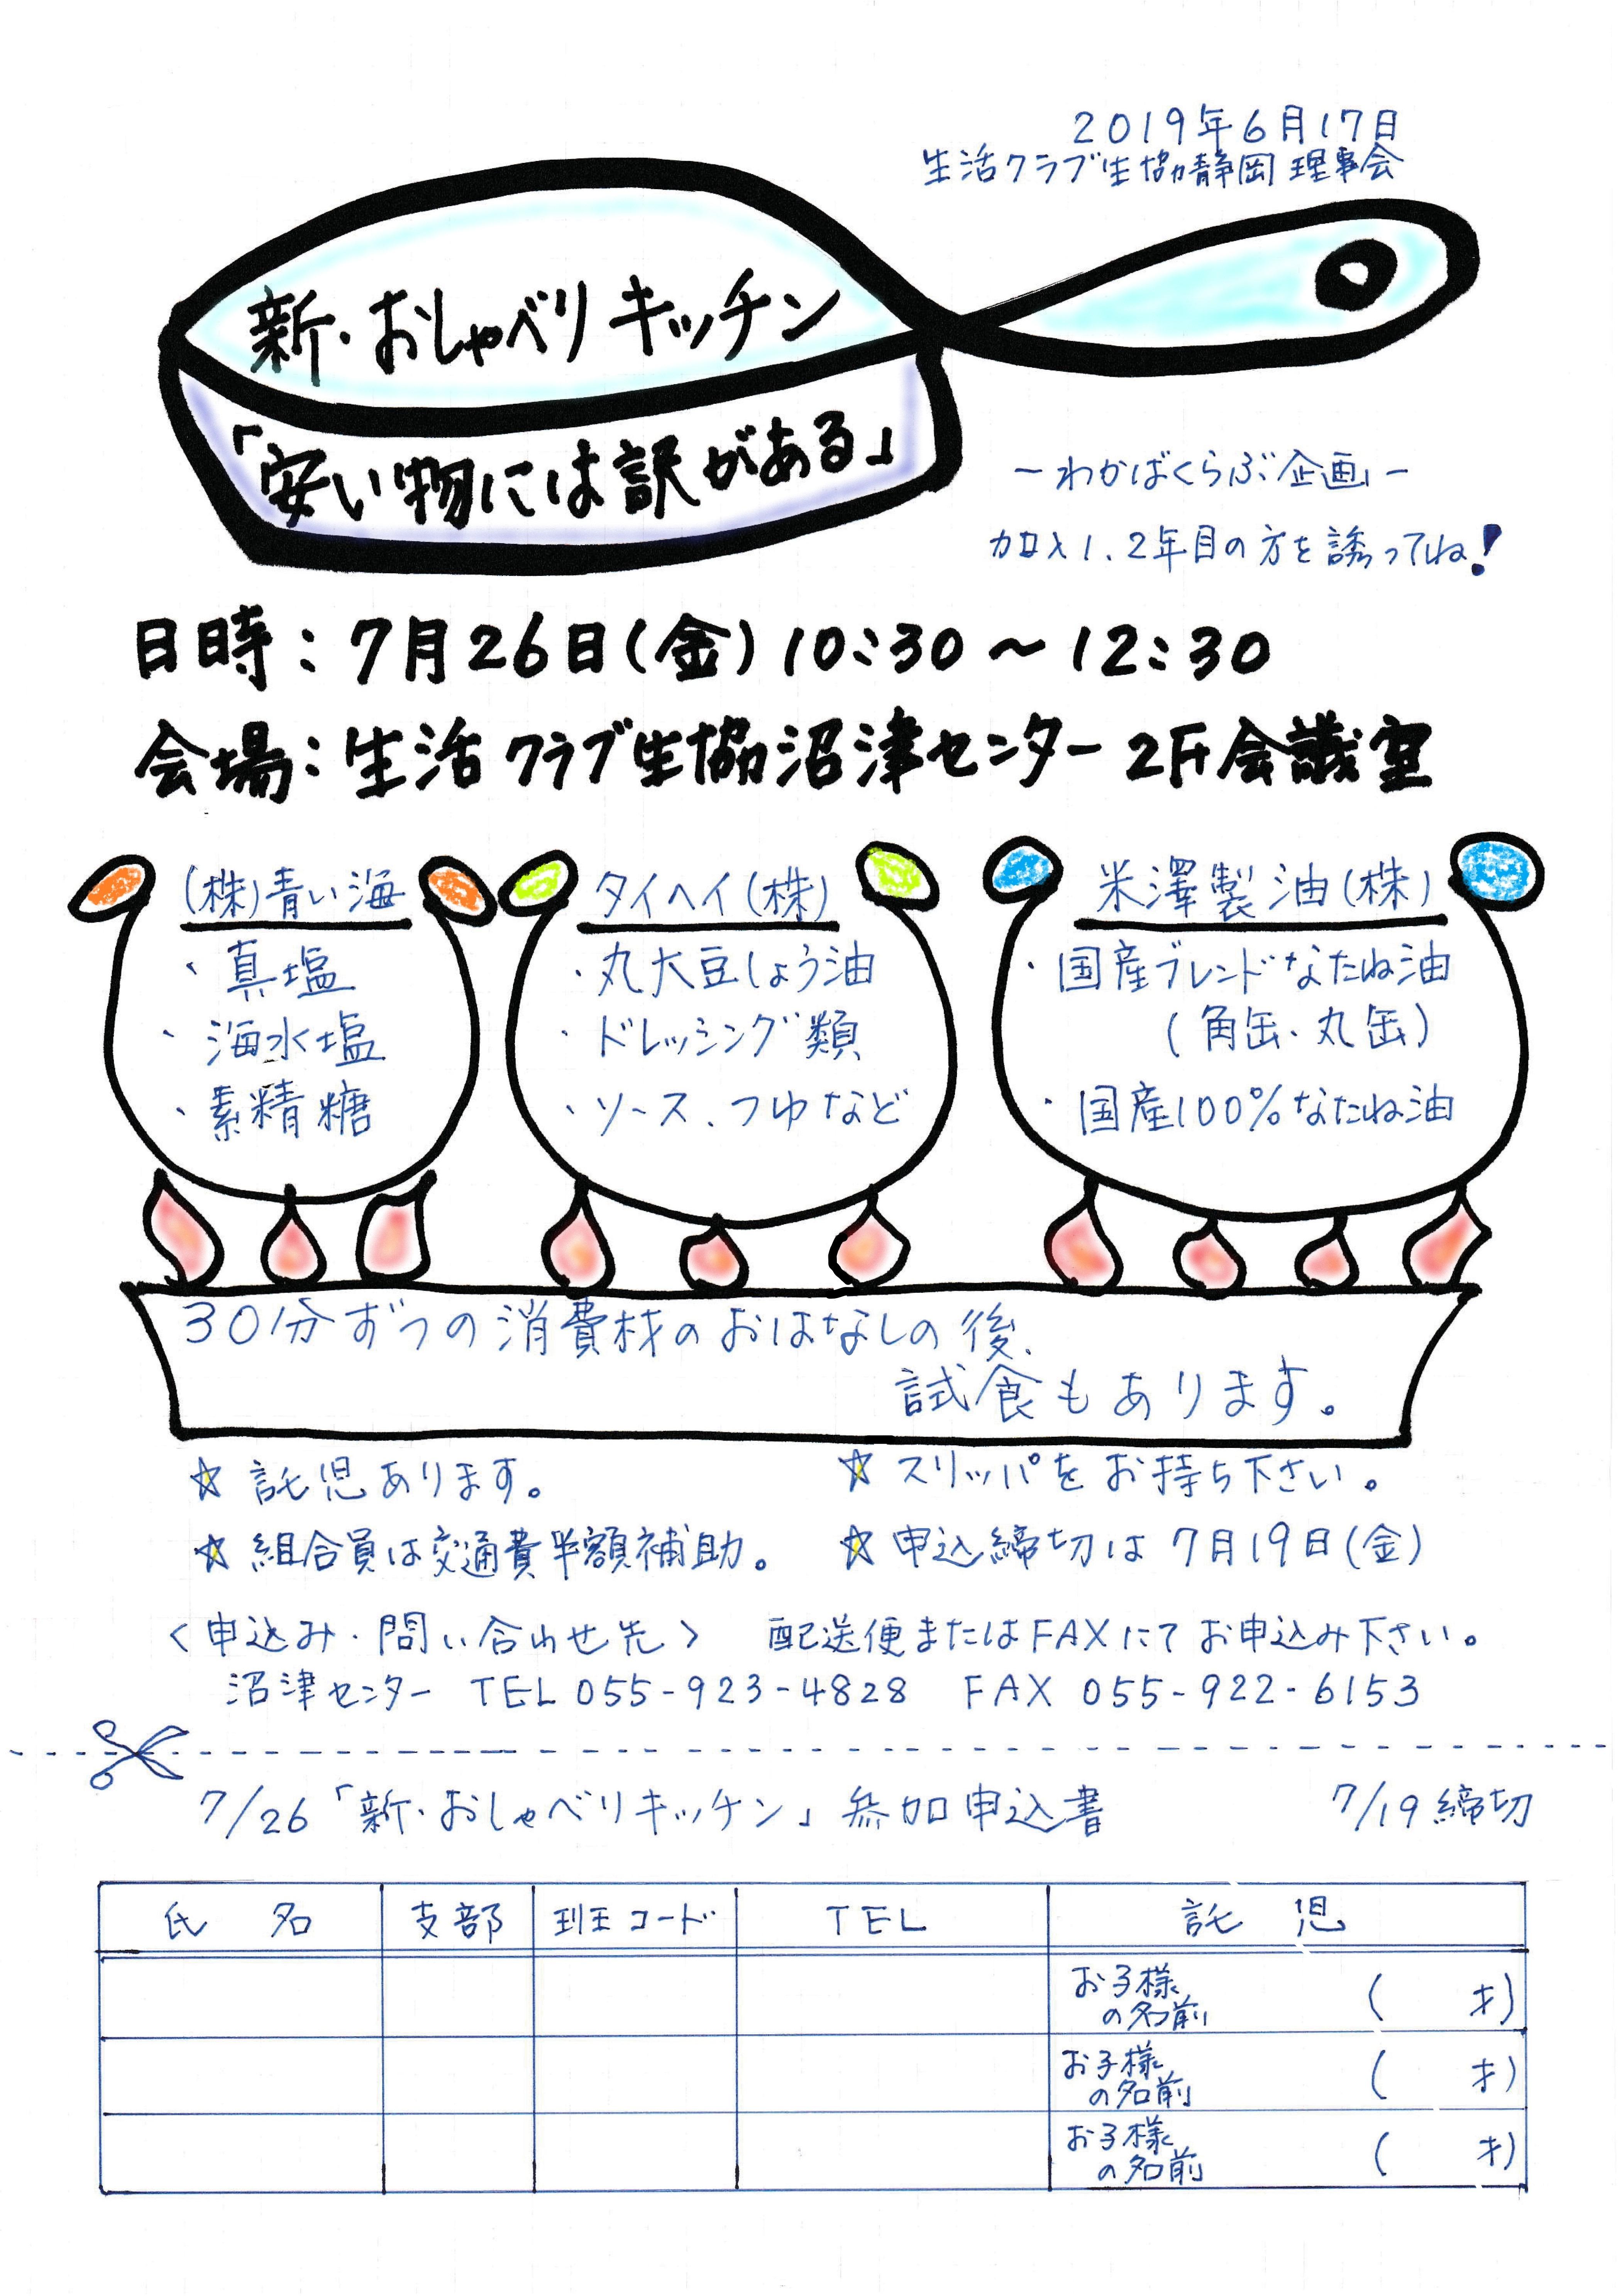 2019年6月17日
生活クラブ生協静岡 理事会
新・おしゃべりキッチン
「安い物には訳がある」
－わかばくらぶ企画－
加入1、2年目の方を誘ってね！
日時：7月26日(金)10：30～12：30
会場：生活クラブ生協沼津センター2F会議室
(株)青い海
・真塩
・海水塩
・素精糖
タイヘイ(株)
・丸大豆しょう油
・ドレッシング類
・ソース、つゆなど
米澤製油(株)
・国産ブレンドなたね油
(角缶、丸缶)
・国産100％なたね油
30分ずつの消費材のおはなしの後、
試食もあります。
☆託児あります。
☆スリッパをお持ち下さい。
☆組合員は交通費半額補助。
☆申込締切は7月19日(金)
〈申込み・問い合わせ先〉 配送便またはFAXにてお申込み下さい。
沼津センター TEL055-923-4828 FAX 055-922-6153
7/26「新・おしゃべりキッチン」参加申込書 7/19締切
氏名 支部 班コード TEL 託児
お子様の名前 ( 才)
お子様の名前 ( 才)
お子様の名前 ( 才)